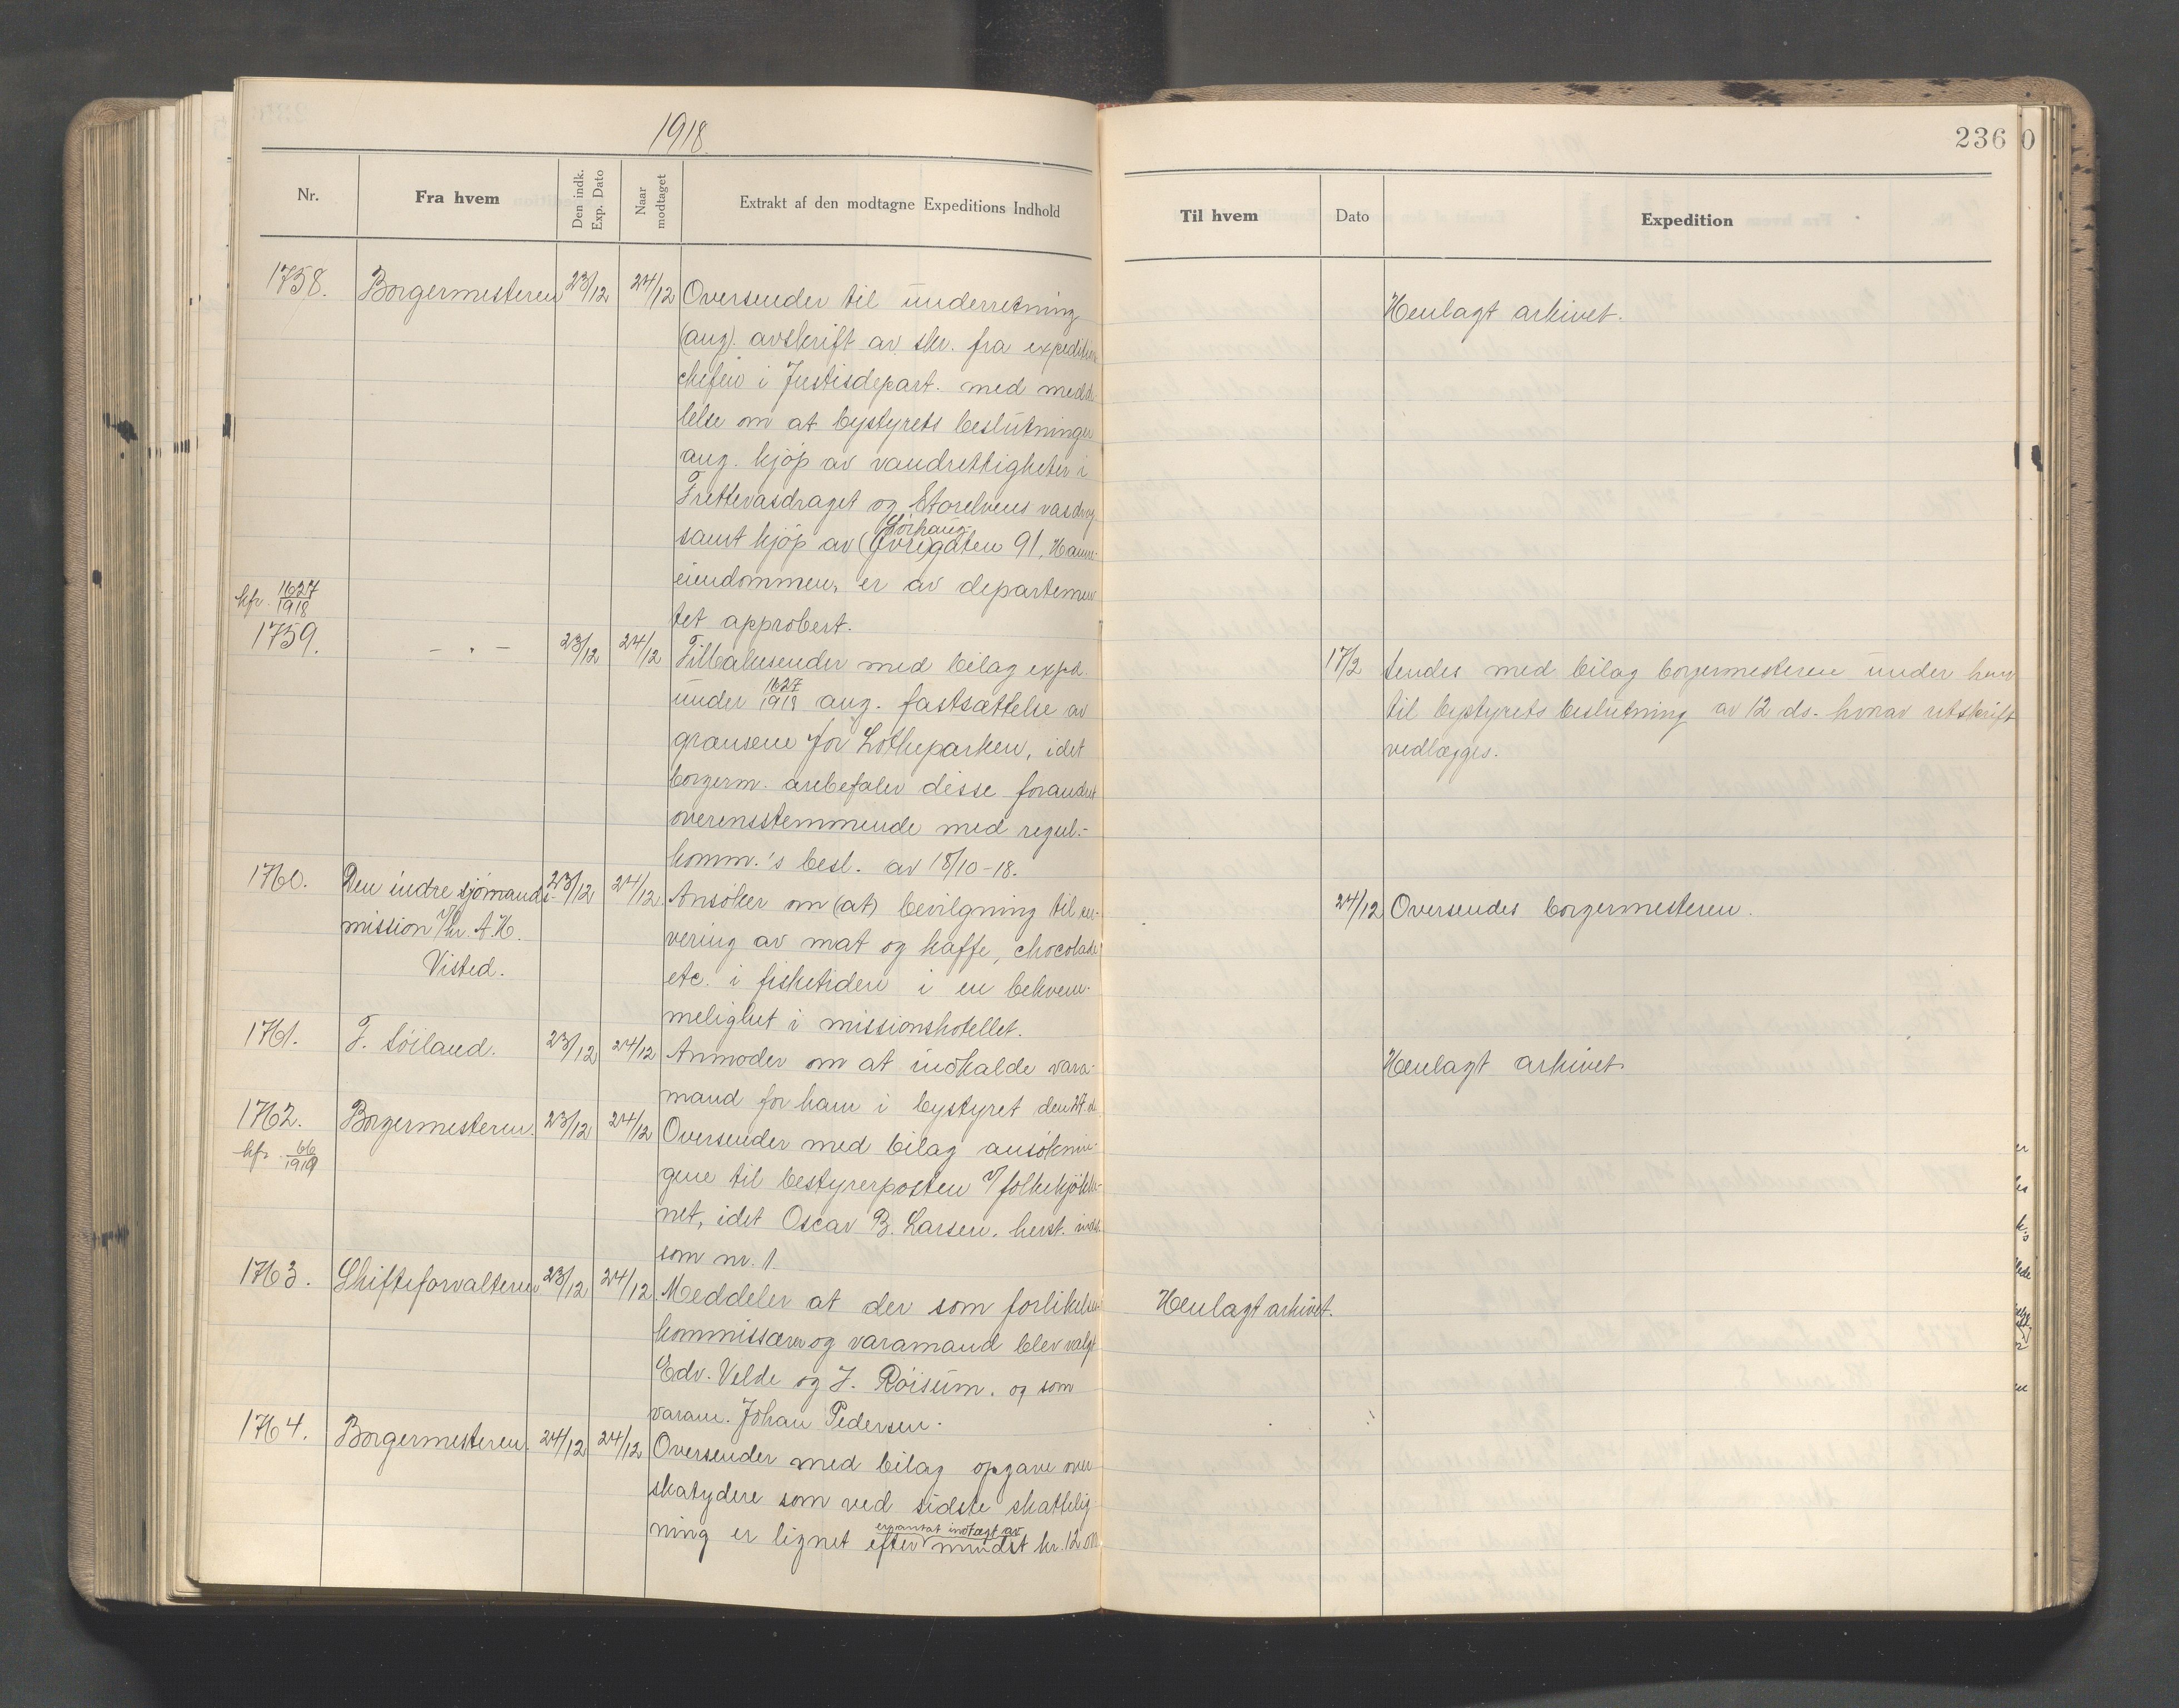 1918.
Nr.
Fra hvem
Den indk. Exp. Dato
Naar modtaget
Extrakt af den modtagne Expeditions Indhold
1758.
Borgermesteren
23/12
24/12
Oversender til underretning
(ang). avskrift av skr. fra expeditions
chefen i Justisdepart. med medde
lelse om at bystyrets beslutninger
ang. kjøp av vandrettigheter i
vasdraget og Storelvens vasdrag
Sörhaug
samt kjøp av (Övre)gaten 91,
eiendommen, er av departemen
tet approbert.
kfr. 1627/1918
1759.
- " -
23/12
24/12
Tilbakesender med bilag expd.
under 1627/1918 ang. fastsættelse av
grænsene for Lotheparken, idet
borgerm. anbefaler disse forandret
overensstemmende med regul.-
komm.'s besl. av 18/10-18.
1760.
Den indre sjömands-
mission v/hr. A.K.
Visted.
23/12
24/12
Ansöker om (at) bevilgning til
vering av mat og kaffe, chocolade
etc. i fisketiden i en bekvem-
melighet i missionshotellet.
1761.
T. Söiland.
23/12
24/12
Anmoder om at indkalde vara-
mand for ham i bystyret den 27. d.
1762.
kfr. 66/1919
Borgermesteren.
23/12
24/12
Oversender med bilag ansöknin-
gene til bestyrerposten v/folkekjökke-
net, idet Oscar B. Larsen, herst. indst.
som nr. 1.
1763.
Skifteforvalteren
23/12
24/12
Meddeler at der som forlikelses
kommissærer og varamand blev valgt
Edv. Velde og J. Röisum, og som
varam. Johan Pedersen.
1764.
Borgermesteren.
24/12
24/12
Oversender med bilag opgave over
skatydere som ved sidste skattelig
ning er lignet efter
indtægt av
mindst kr. 12000
236
0
Til hvem
Dato
Expedition
Henlagt arkivet.
17/2
Sendes med bilag borgermesteren under henv
til bystyrets beslutning av 12 ds. hvorav utskrift
vedlægges.
24/12
Oversendes borgermesteren.
Henlagt arkivet.
Henlagt arkivet.